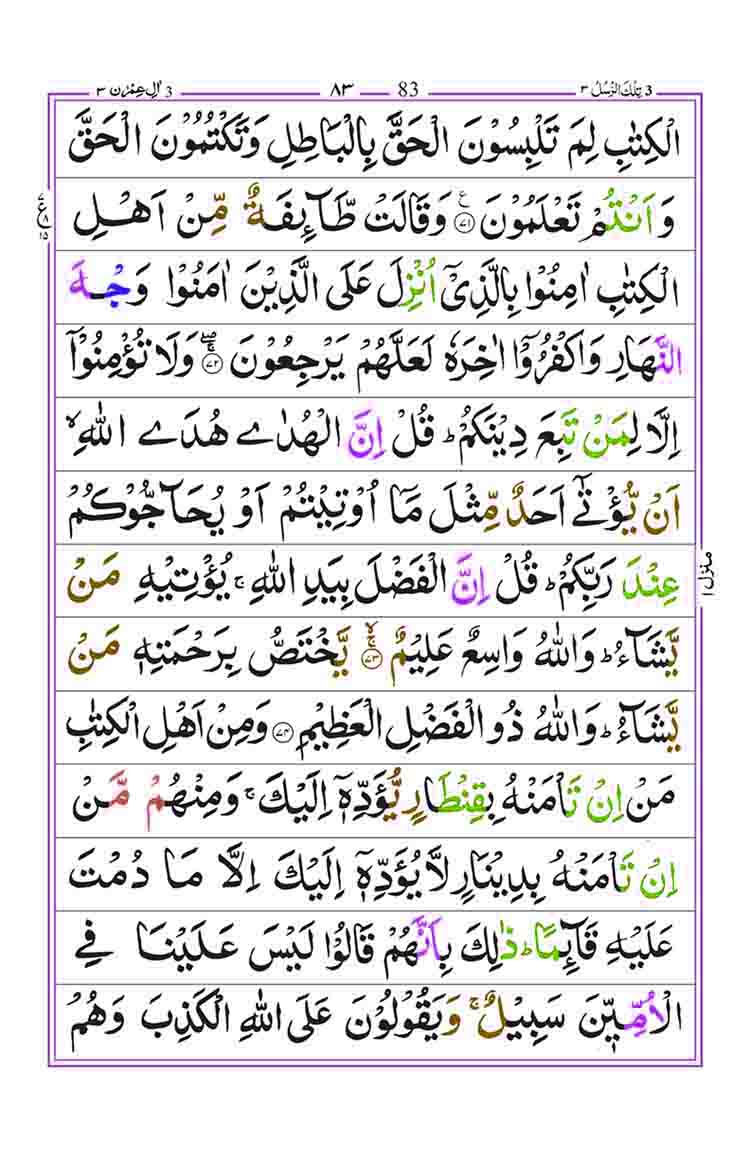 3 تِلْكَ الرُّسُلُ ٣ 83 ٨٣ 3 اٰلِ عِمْرٰن ٣
الْكِتٰبِ لِمَ تَلْبِسُوْنَ الْحَقَّ بِالْبَاطِلِ وَتَكْتُمُوْنَ الْحَقَّ
وَ اَنْتُمْ تَعْلَمُوْنَ ﴿٧١﴾ ع وَقَالَتْ طَّآئِفَةٌ مِّنْ اَهْلِ
٧ ع ٨ ١٥
الْكِتٰبِ اٰمِنُوْا بِالَّذِيْٓ اُنْزِلَ عَلَى الَّذِيْنَ اٰمَنُوْا وَجْهَ
النَّهَارِ وَاكْفُرُوْٓا اٰخِرَهٗ لَعَلَّهُمْ يَرْجِعُوْنَ ﴿٧٢﴾ وَلَا تُؤْمِنُوْٓا
اِلَّا لِمَنْ تَبِعَ دِيْنَكُمْ ؕ قُلْ اِنَّ الْهُدٰى هُدَى اللّٰهِ ۙ
اَنْ يُّؤْتٰٓى اَحَدٌ مِّثْلَ مَآ اُوْتِيْتُمْ اَوْ يُحَآجُّوْكُمْ
عِنْدَ رَبِّكُمْ ؕ قُلْ اِنَّ الْفَضْلَ بِيَدِ اللّٰهِ ۚ يُؤْتِيْهِ مَنْ
منزل ١
يَّشَآءُ ؕ وَاللّٰهُ وَاسِعٌ عَلِيْمٌ ﴿٧٣﴾ ۙ يَّخْتَصُّ بِرَحْمَتِهٖ مَنْ
يَّشَآءُ ؕ وَاللّٰهُ ذُو الْفَضْلِ الْعَظِيْمِ ﴿٧٤﴾ وَمِنْ اَهْلِ الْكِتٰبِ
مَنْ اِنْ تَاْمَنْهُ بِقِنْطَارٍ يُّؤَدِّهٖٓ اِلَيْكَ ۚ وَمِنْهُمْ مَّنْ
اِنْ تَاْمَنْهُ بِدِيْنَارٍ لَّا يُؤَدِّهٖٓ اِلَيْكَ اِلَّا مَا دُمْتَ
عَلَيْهِ قَآئِمًا ؕ ذٰلِكَ بِاَنَّهُمْ قَالُوْا لَيْسَ عَلَيْنَا فِى
الْاُمِّيّٖنَ سَبِيْلٌ ۚ وَيَقُوْلُوْنَ عَلَى اللّٰهِ الْكَذِبَ وَهُمْ